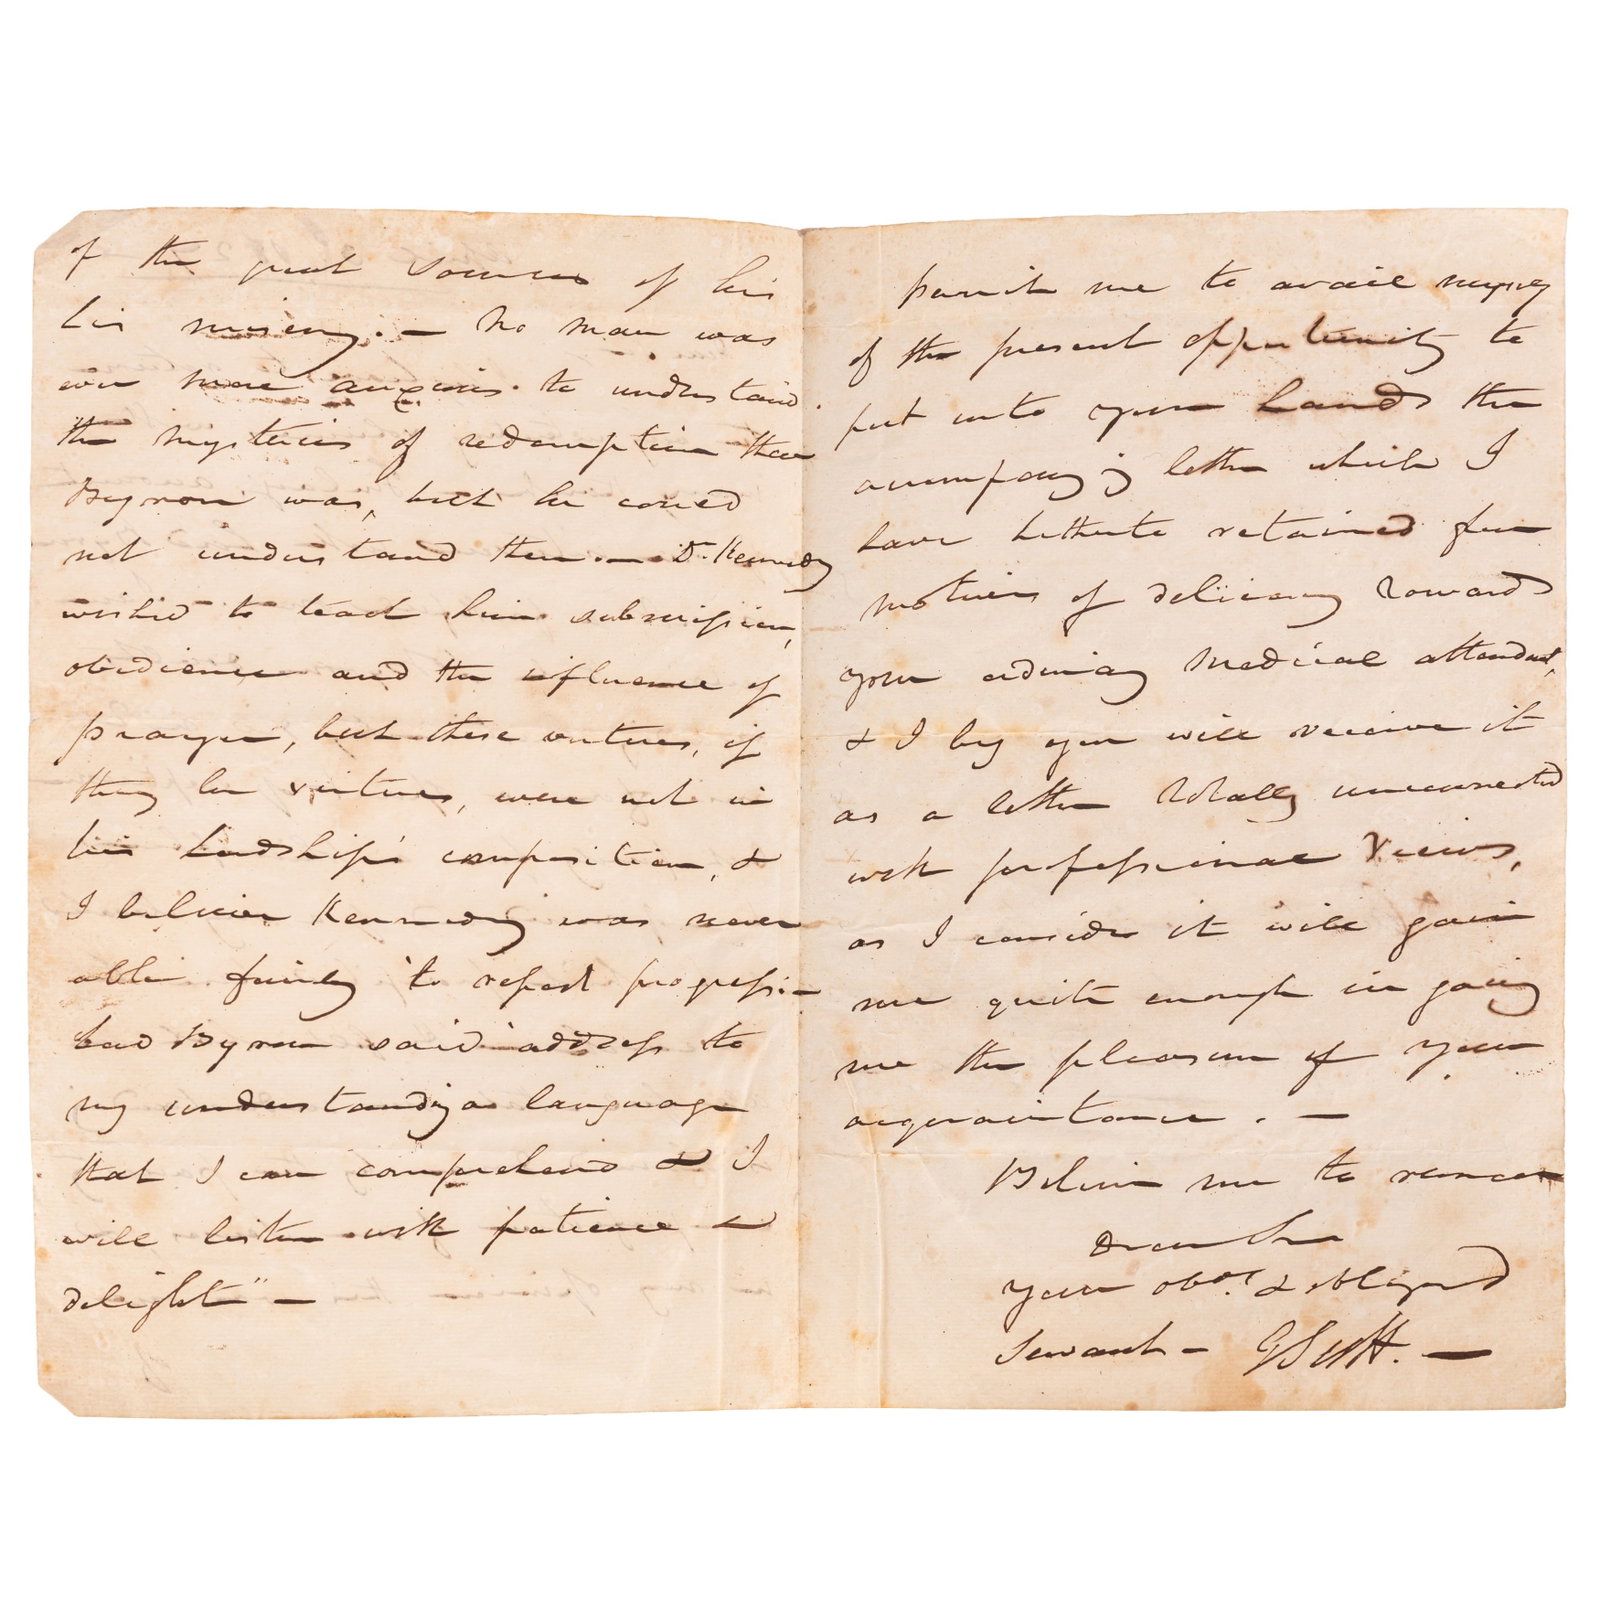 of the great sources of his
his misery. — No man was
ever more anxious to understand
the mysteries of redemption than
Byron was, but he could
not understand them. — Dr. Kennedy
wished to teach him submission,
obedience and the influence of
prayer, but these virtues, if
they be virtues, were not in
his Lordship's composition, &
I believe Kennedy was never
able fairly to report progress. —
Lord Byron said "address to
my understanding a language
that I can comprehend & I
will listen with patience &
delight" —
Permit me to avail myself
of the present opportunity to
put into your hands the
accompanying letter which I
have hitherto retained from
motives of delicacy towards
your ordinary Medical attendant,
& I beg you will receive it
as a letter totally unconnected
with professional views,
as I consider it will gain
me quite enough in giving
me the pleasure of your
acquaintance. —
Believe me to remain
Dear Sir
Your obt. & obliged
Servant — G Scott. —